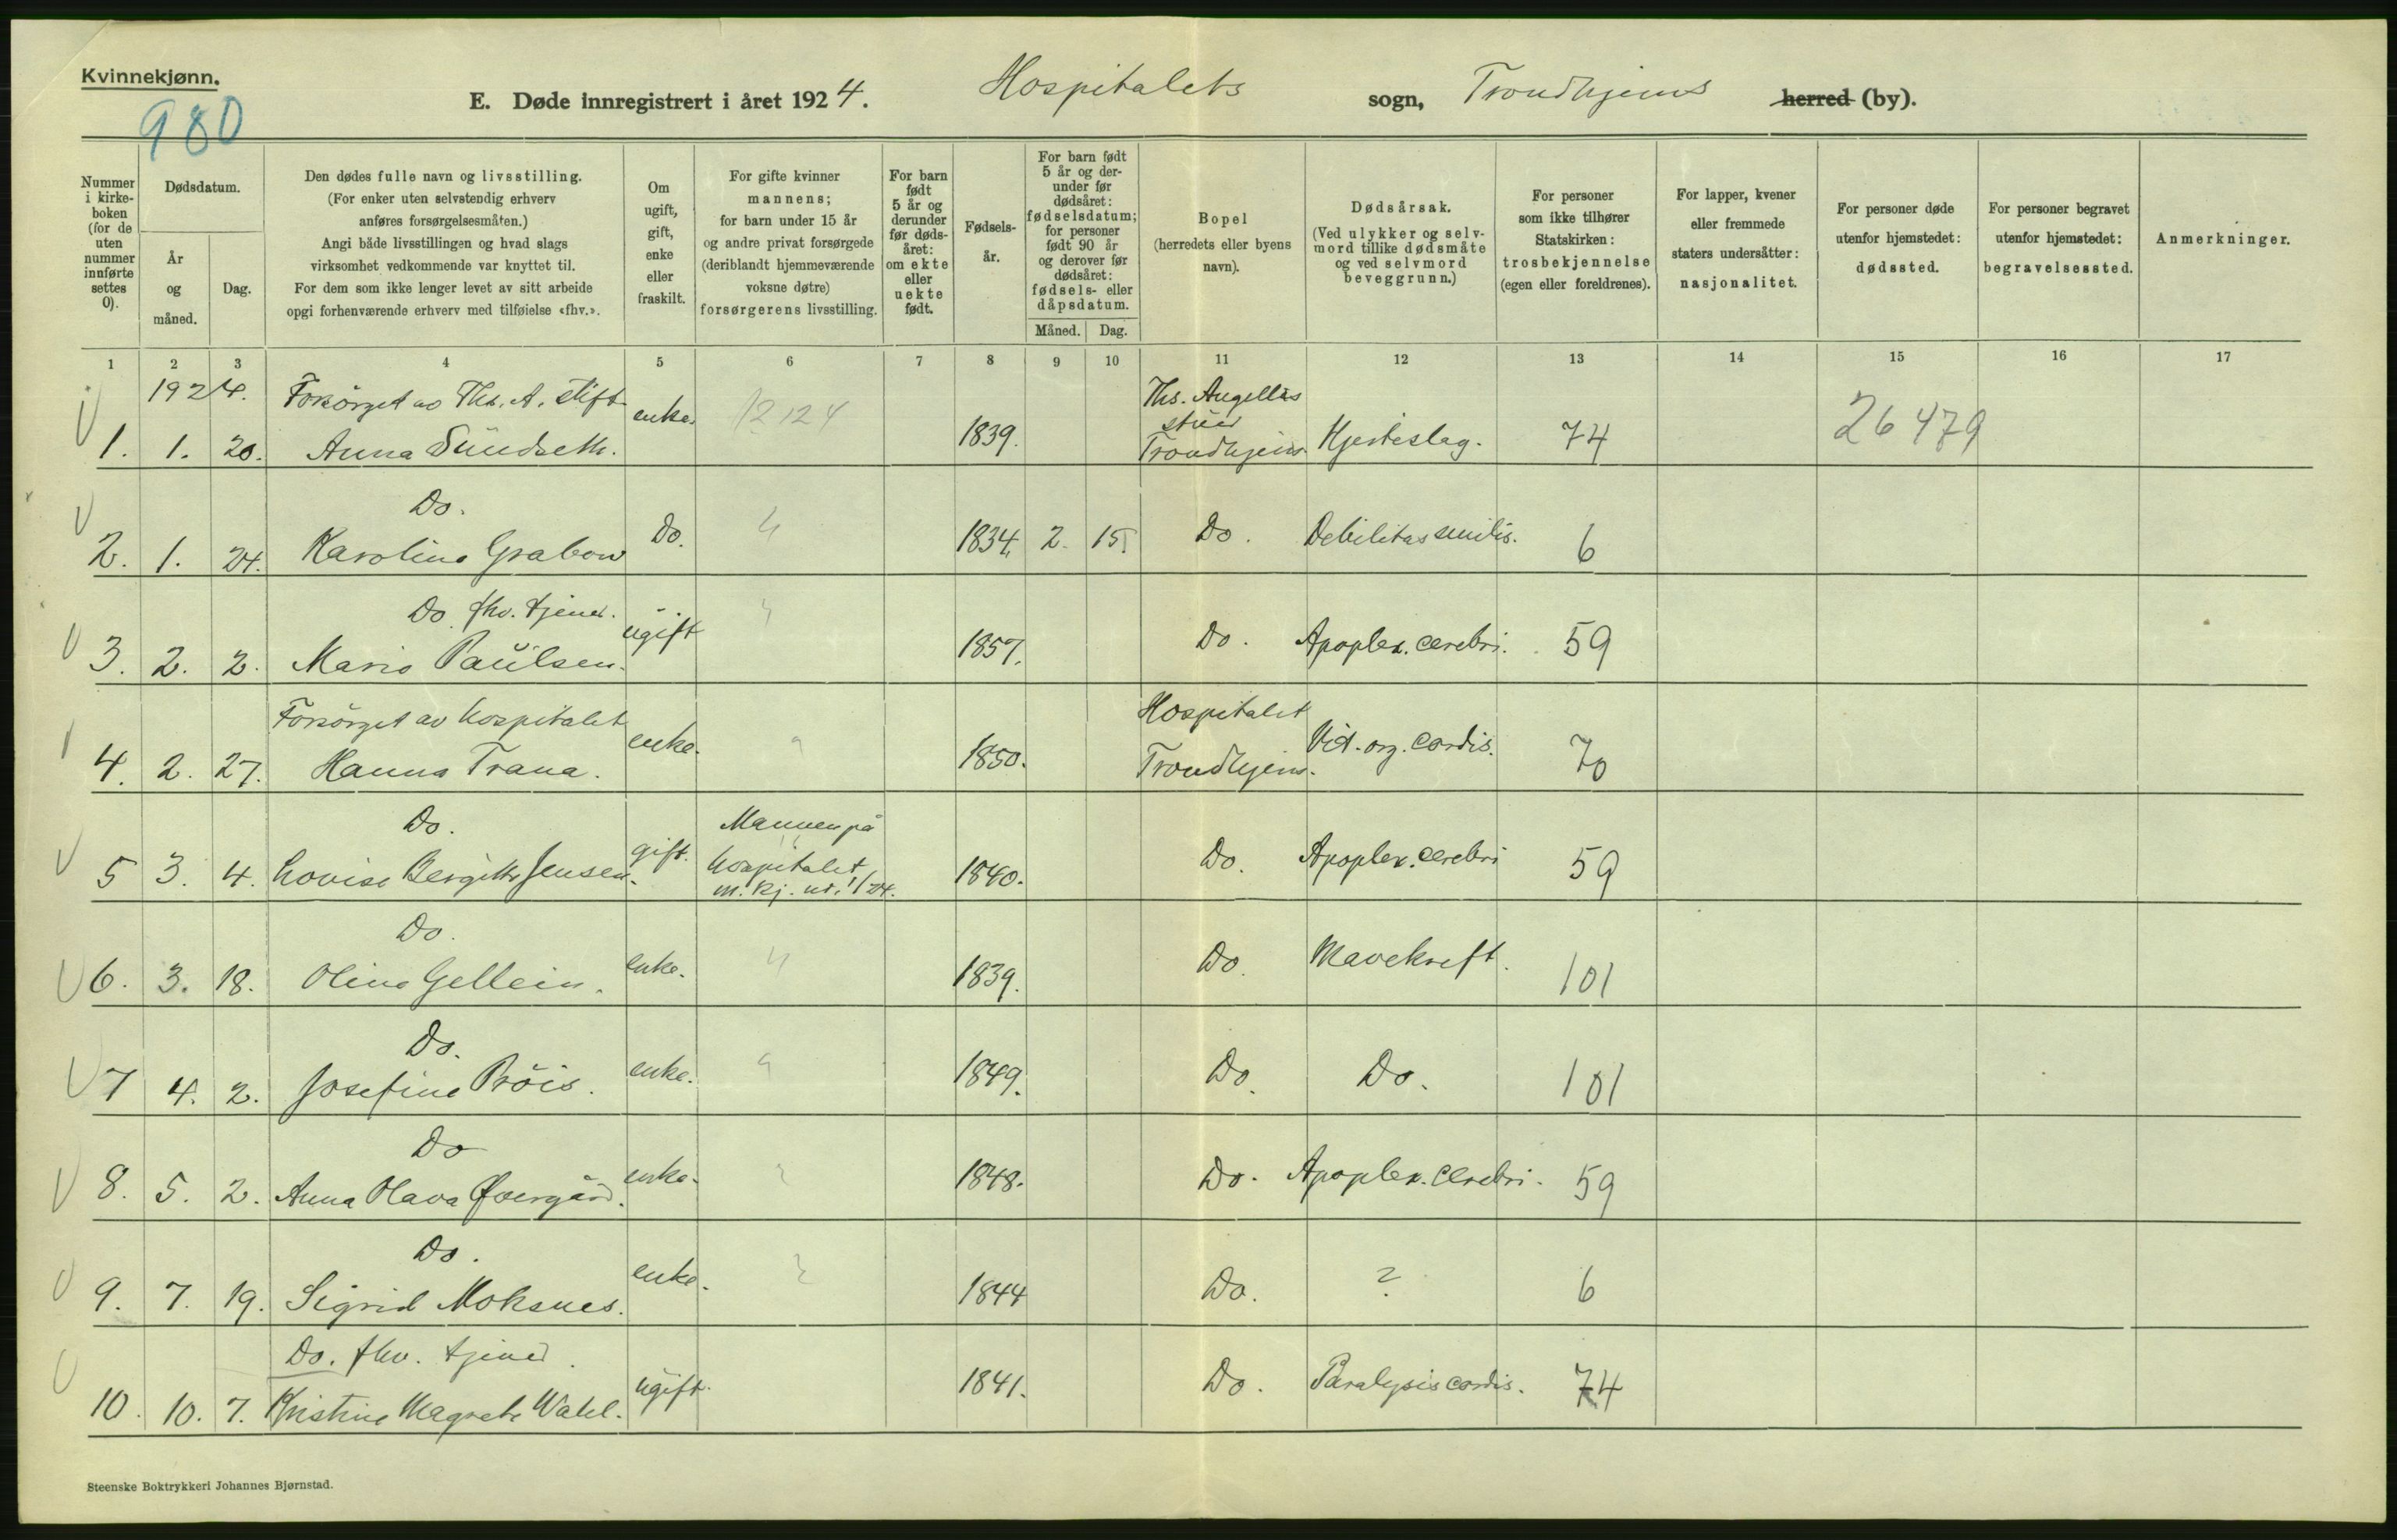 Kvinnekjønn.
980
E. Døde innregistrert i året 1924. Hospitalets sogn, Trondhjems herred (by).
Nummer i kirkeboken (for de uten nummer innførte settes 0).
Dødsdatum.
År og måned.
Dag.
Den dødes fulle navn og livsstilling.
(For enker uten selvstendig erhverv
anføres forsørgelsesmåten.)
Angi både livsstillingen og hvad slags
virksomhet vedkommende var knyttet til.
For dem som ikke lenger levet av sitt arbeide
opgi forhenværende erhverv med tilføielse «fhv.».
Om ugift, gift, enke eller fraskilt.
For gifte kvinner
mannens;
for barn under 15 år
og andre privat forsørgede
(deriblandt hjemmeværende
voksne døtre)
forsørgerens livsstilling.
For barn født 5 år og derunder før dødsåret: om ekte eller uekte født.
Fødselsår.
For barn født 5 år og derunder før dødsåret: fødselsdatum; for personer født 90 år og derover før dødsåret: fødsels- eller dåpsdatum.
Måned. Dag.
Bopel
(herredets eller byens
navn).
Dødsårsak.
(Ved ulykker og selvmord tillike dødsmåte og ved selvmord beveggrunn.)
For personer
som ikke tilhører
Statskirken:
trosbekjennelse
(egen eller foreldrenes).
For lapper, kvener
eller fremmede
staters undersåtter:
nasjonalitet.
For personer døde
utenfor hjemstedet:
dødssted.
For personer begravet
utenfor hjemstedet:
begravelsessted.
Anmerkninger.
1 2 3 4 5 6 7 8 9 10 11 12 13 14 15 16 17
1924. Forsörget av Ths. A. Stift. Ths. Angells
1. 1. 20. Anna Sündseth. enke. 12124 1839. stüer Trondhjem. Hjerteslag. 74 26479
Do.
2. 1. 24. Karoline Grabow Do. 1834. 2. 15. Do. Debilitas senilis. 6
Do. fhv. tjener.
3. 2. 2. Marie Paülsen. ügift 1857. Do. Apoplex. cerebri. 59
Forsörget av hospitalet Hospitalet
4. 2. 27. Hanna Trana. enke. 1850. Trondhjem. Vit. org. cordis. 70
Do. Mannen på
5 3. 4. Lovise Bergitte Jensen. gift. hospitalet, 1840. Do. Apoplex. cerebri 59
m. kj. nr. 1/24.
Do.
6. 3. 18. Oline Gellein. enke. 1839. Do. Mavekreft. 101
Do.
7 4. 2. Josefine Pröis. enke. 1849. Do. Do. 101
Do
8. 5. 2. Anna Olava Øvergård. enke. 1848. Do. Apoplex. cerebri. 59
Do.
9. 7. 19. Sigrid Moksnes. enke. 1844 Do. ? 6
Do. fhv. tjener.
10. 10. 7. Kristine Magrete Wahl. ügift. 1841. Do. Paralysis cordis. 74
Steenske Boktrykkeri Johannes Bjørnstad.